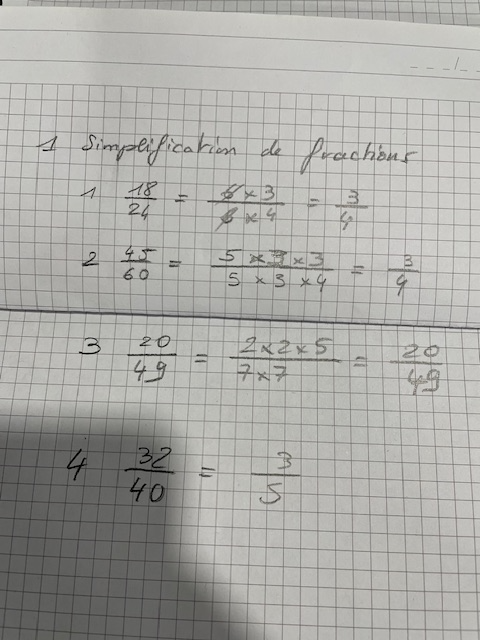 1 Simplification de fractions
1 18/24 = 6 x 3/6 x 4 = 3/4
2 45/60 = 5 x 3 x 3/5 x 3 x 4 = 3/4
3 20/49 = 2x2x5/7x7 = 20/49
4 32/40 = 3/5